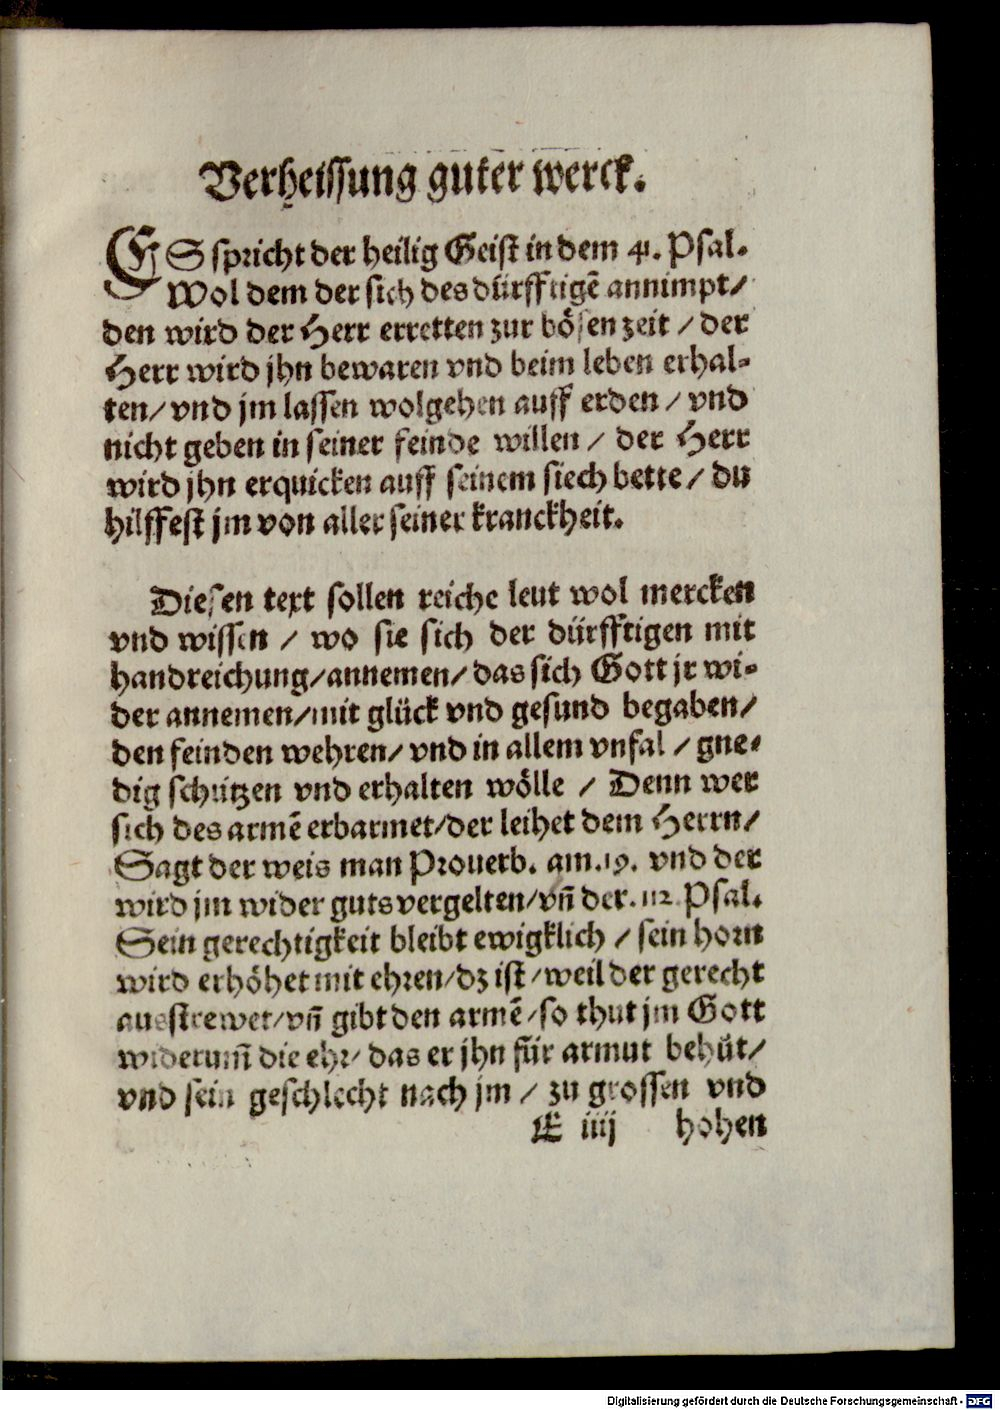 Verheissung guter werck.
ES spricht der heilig Geist in dem 41. Psal.
Wol dem der sich des dürfftigẽ annimpt/
den wird der Herr erretten zur bösen zeit / der
Herr wird jhn bewaren vnd beim leben erhal-
ten/ vnd jm lassen wolgehen auff erden / vnd
nicht geben in seiner feinde willen / der Herr
wird jhn erquicken auff seinem siech bette / du
hilffest jm von aller seiner kranckheit.
Diesen text sollen reiche leut wol mercken
vnd wissen / wo sie sich der dürfftigen mit
handreichung/annemen/ das sich Gott jr wi-
der annemen/mit glück vnd gesund begaben/
den feinden wehren/ vnd in allem vnfal / gne-
dig schützen vnd erhalten wölle / Denn wer
sich des armẽ erbarmet/der leihet dem Herrn/
Sagt der weis man Prouerb. am .19. vnd der
wird jm wider guts vergelten/vñ der .112. Psal.
Sein gerechtigkeit bleibt ewigklich / sein horn
wird erhöhet mit ehren/dz ist/weil der gerecht
ausstrewet/vñ gibt den armẽ/so thut jm Gott
widerum̃ die ehr/ das er jhn für armut behüt/
vnd sein geschlecht nach jm / zu grossen vnd
E iiij hohen
Digitalisierung gefördert durch die Deutsche Forschungsgemeinschaft - DFG